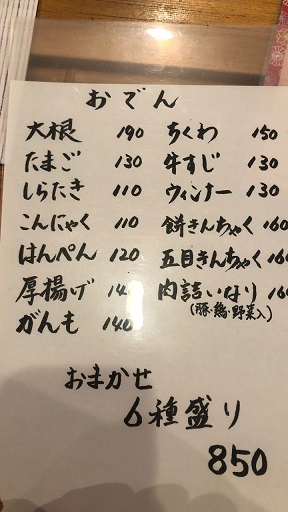 おでん
大根 190 ちくわ 150
たまご 130 牛すじ 130
しらたき 110 ウィンナー 130
こんにゃく 110 餅きんちゃく 160
はんぺん 120 五目きんちゃく 160
厚揚げ 14 肉詰いなり 160
(豚・鶏・野菜入)
がんも 140
おまかせ
6種盛り
850